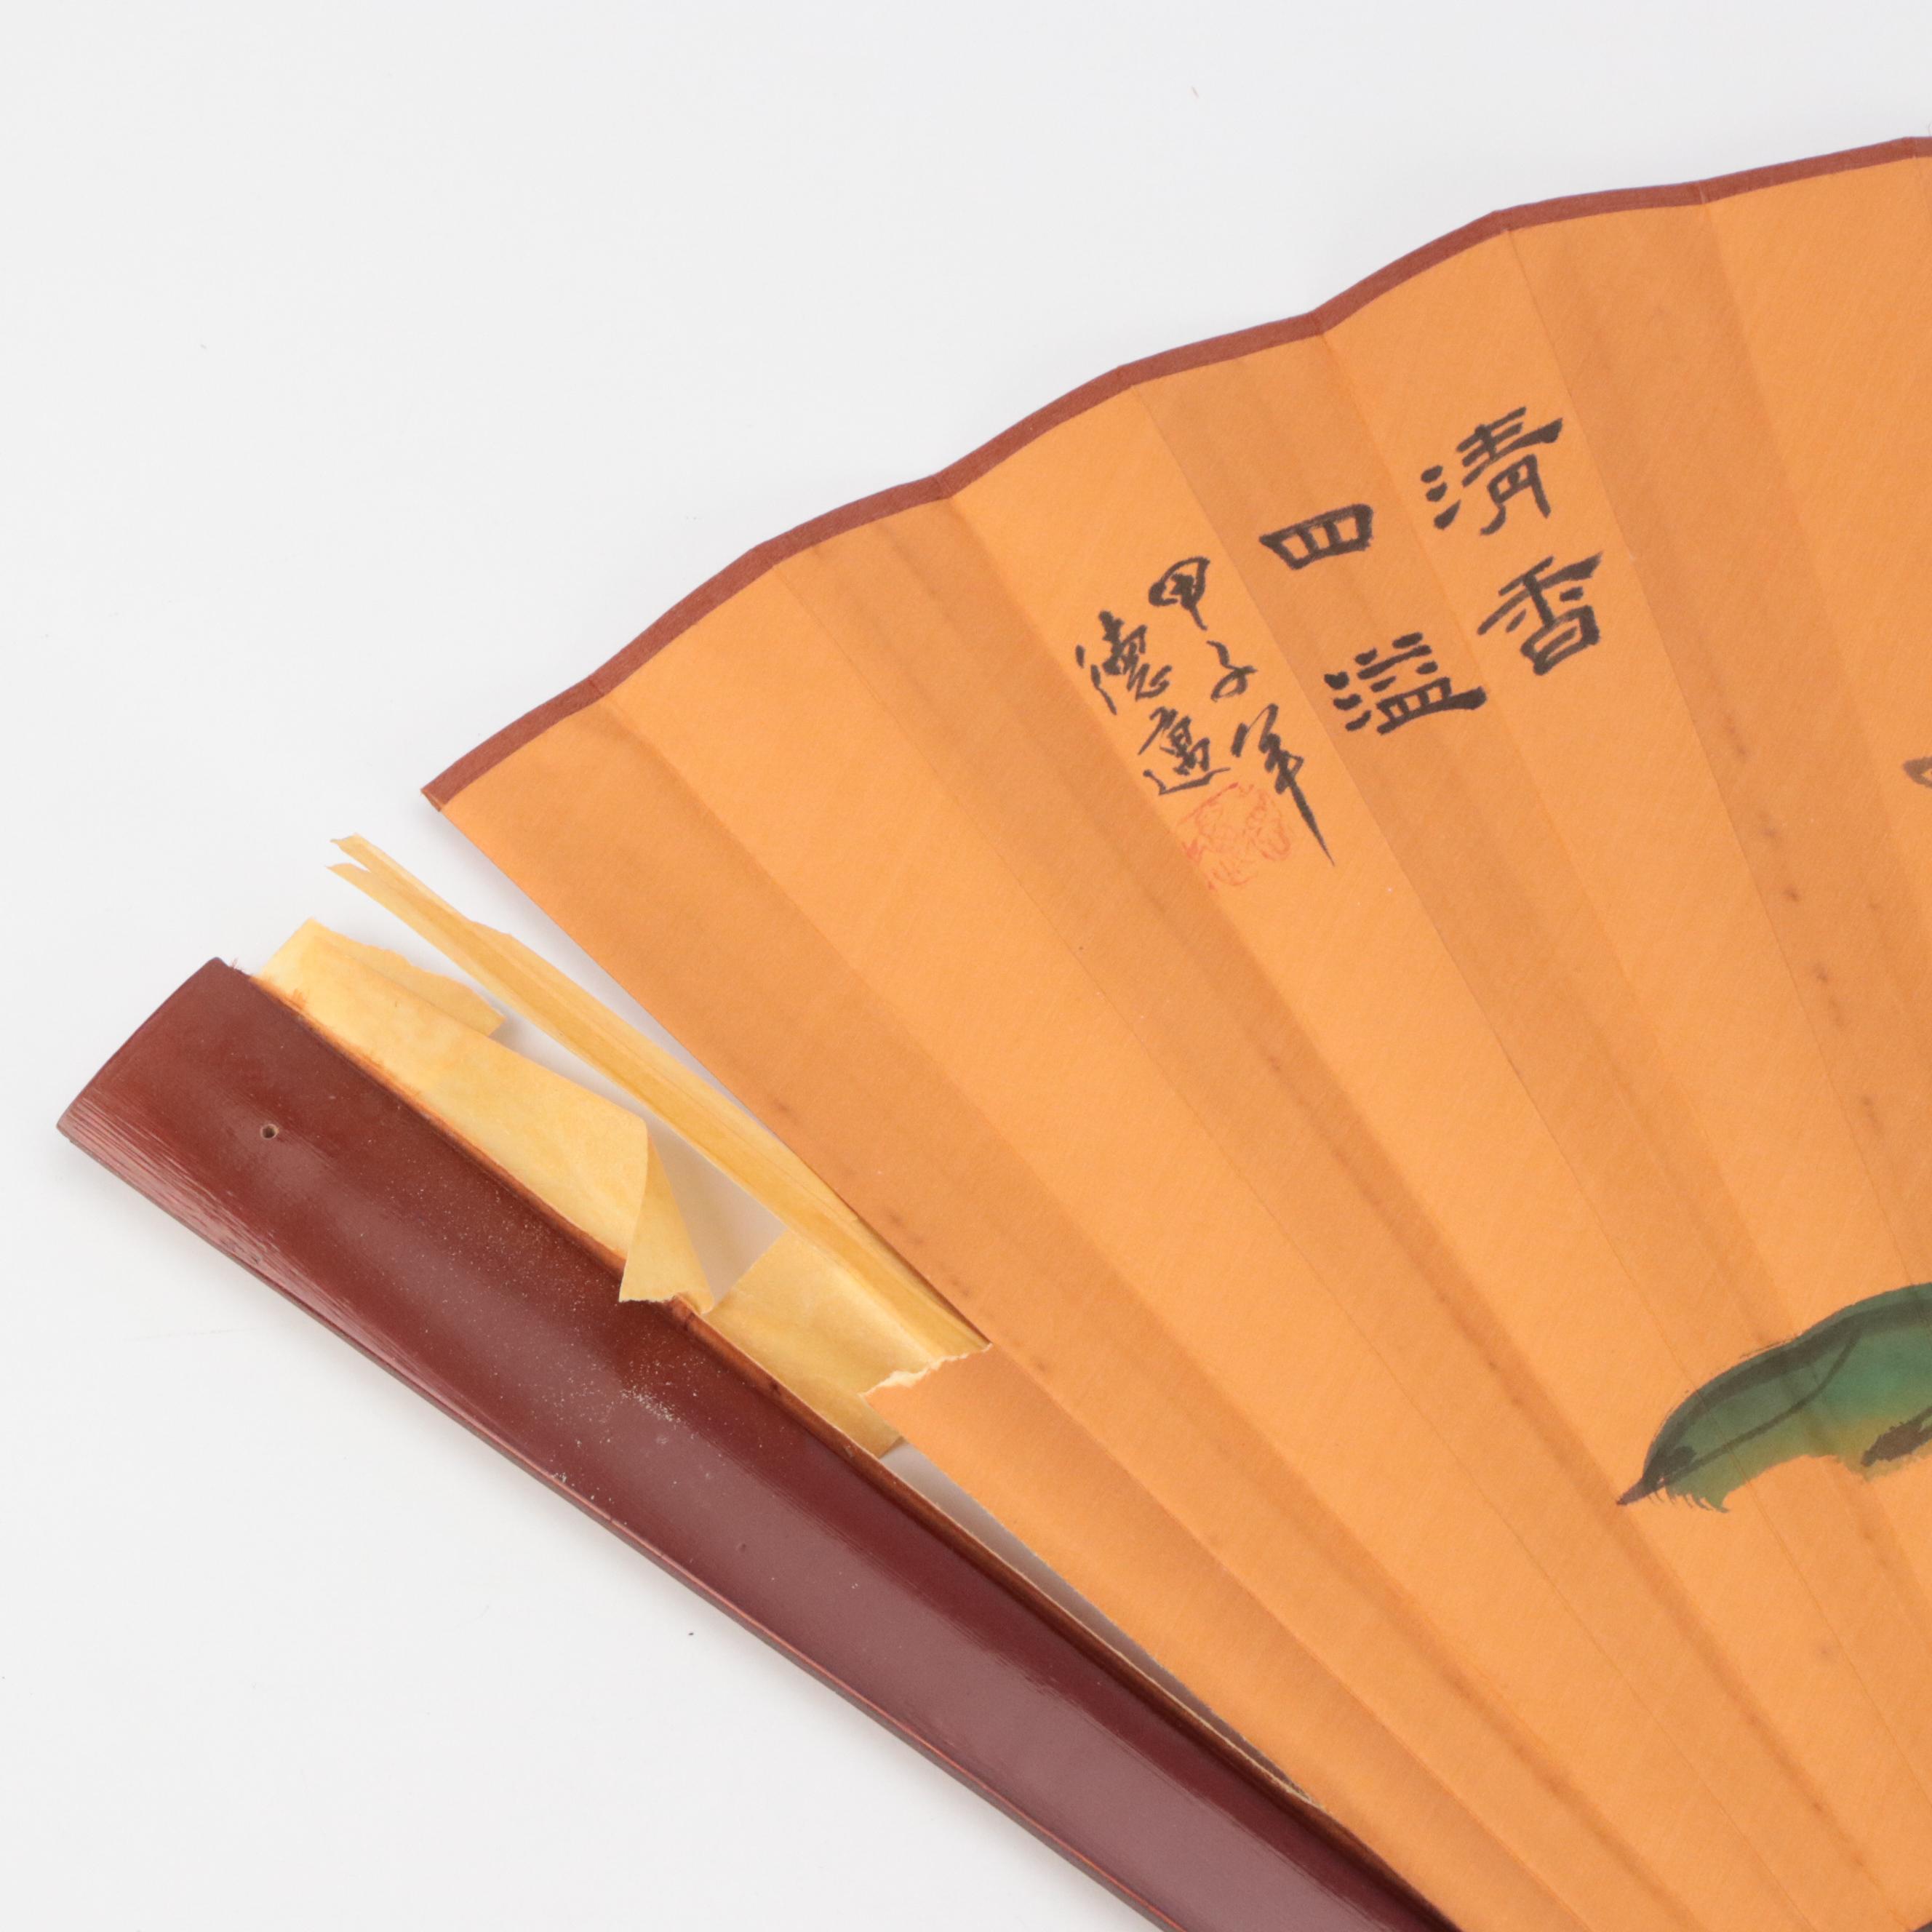 清香
四溢
甲子年
德邁